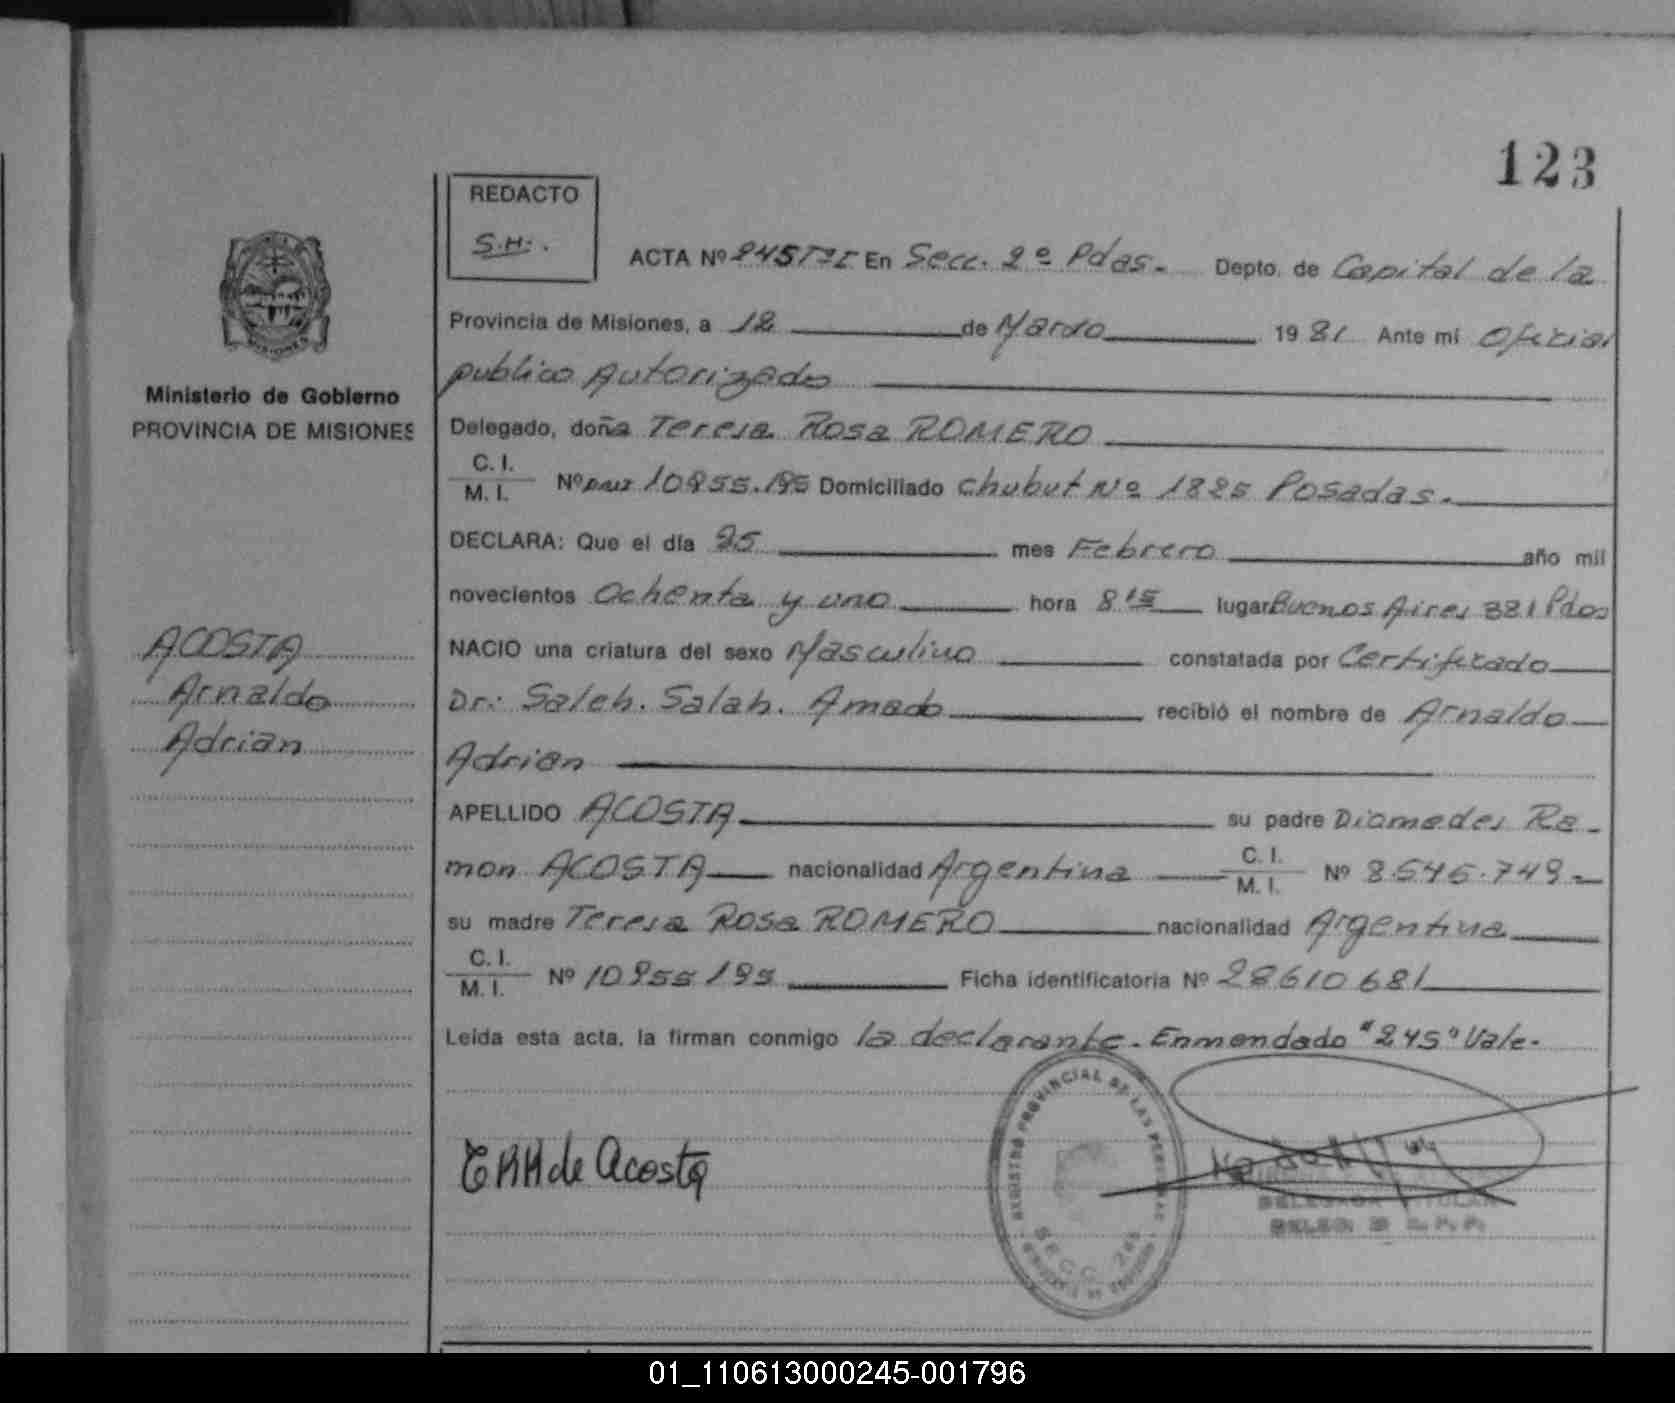 123
REDACTO
S.H.
ACTA Nº 245 En Secc. 2º Pdas. Depto. de Capital de la
Provincia de Misiones, a 12 de Marzo 1981 Ante mi Oficial
publico Autorizado
Ministerio de Gobierno
PROVINCIA DE MISIONES
Delegado, doña Teresa Rosa ROMERO
C. I.
M. I. Nº 10955.195 Domiciliado Chubut Nº 1825 Posadas.
DECLARA: Que el día 25 mes Febrero año mil
novecientos Ochenta y uno hora 8 15 lugar Buenos Aires 321 Pdas
ACOSTA
Arnaldo
Adrian
NACIO una criatura del sexo Masculino constatada por Certificado
Dr: Saleh. Salah. Amado recibió el nombre de Arnaldo
Adrian
APELLIDO ACOSTA su padre Diomedes Ra-
mon ACOSTA nacionalidad Argentina C. I. M. I. Nº 8.546.749-
su madre Teresa Rosa ROMERO nacionalidad Argentina
C. I.
M. I. Nº 10955195 Ficha identificatoria Nº 28610681
Leída esta acta, la firman conmigo la declarante. Enmendado "245" Vale.
REGISTRO PROVINCIAL DE LAS PERSONAS
SECC.
de Acosta
DELEGADA TITULAR
01_110613000245-001796